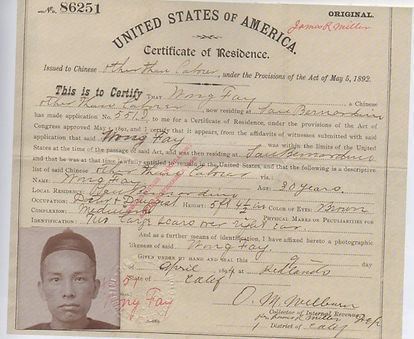 No. 86251
ORIGINAL.
UNITED STATES OF AMERICA.
James R. Miller
Certificate of Residence.
Issued to Chinese other than Laborer, under the Provisions of the Act of May 5, 1892.
This is to Certify THAT Wong Fay, a Chinese
other than Laborer now residing at San Bernardino
has made application No. 5512 to me for a Certificate of Residence, under the provisions of the Act of
Congress approved May 5, 1892, and I certify that it appears, from the affidavits of witnesses submitted with said
application that said Wong Fay was within the limits of the United
States at the time of the passage of said Act, and was then residing at San Bernardino
and that he was at that time lawfully entitled to remain in the United States, and that the following is a descriptive
list of said Chinese other than Laborer viz.:
NAME: Wong Fay AGE: 30 years.
LOCAL RESIDENCE: San Bernardino
OCCUPATION: HEIGHT: 5 ft COLOR OF EYES: Brown
COMPLEXION: Medium PHYSICAL MARKS OR PECULIARITIES FOR
IDENTIFICATION: Two large scars over right ear.
And as a further means of identification, I have affixed hereto a photographic
likeness of said Wong Fay.
GIVEN UNDER MY HAND AND SEAL this day
of April, 1894, at Redlands
Calif
O. M. Welburn
Collector of Internal Revenue,
District of Calif
Wong Fay